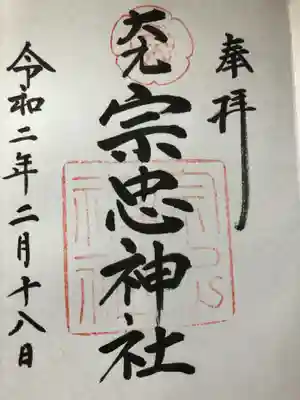 奉拝
大元
宗忠神社
令和二年二月十八日